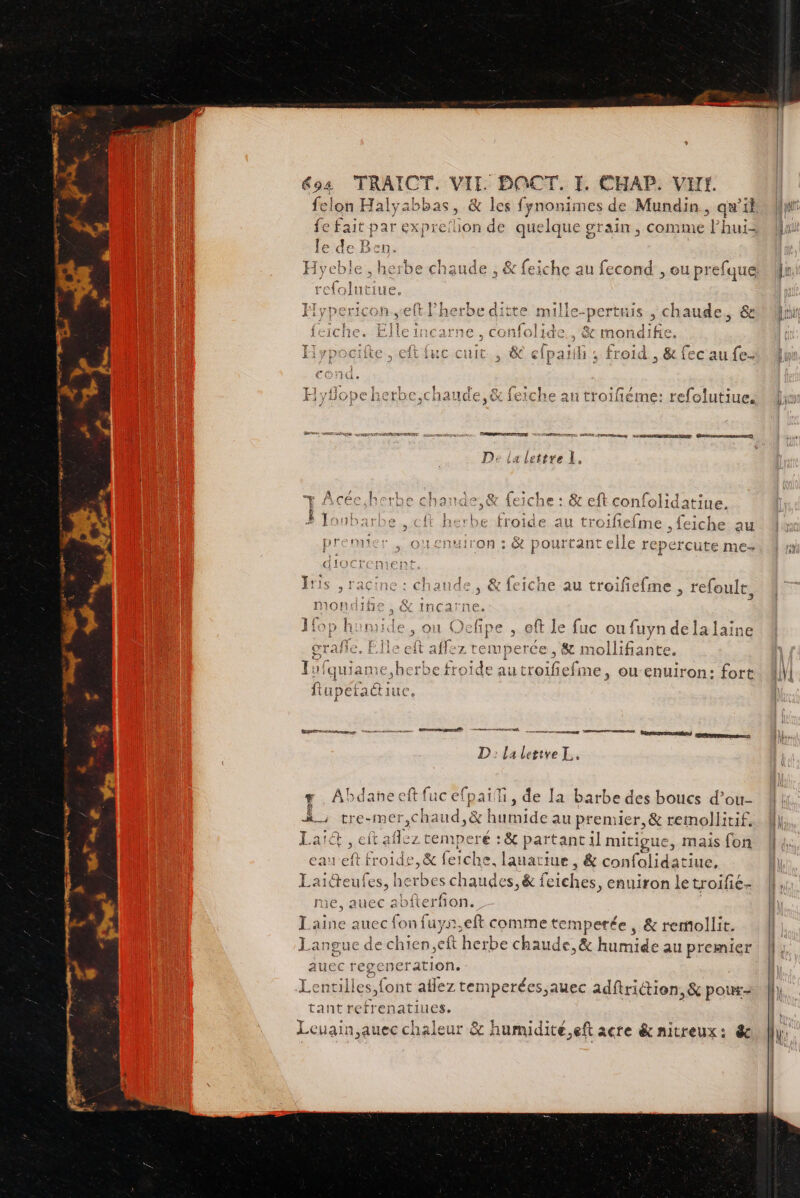 694 TRAICT. VII. DOCT. I. CHAP. VIII.
ſelon Halyabbas, & les ſynonimes de Mundin, qu'il
ſe fait par expreſſion de quelque grain, comme l'hui-
le de Ben.
Hyeble, herbe chaude, & ſeiche au ſecond, ou preſque
reſolutiue.
Hypericon, eſt l'herbe ditte mille-pertuis, chaude, &
ſeiche. Elle incarne, conſolide, & mondifie.
Hypociſte, eſt ſuc cuit, & eſpaiſſi, froid, & ſec au ſe-
cond.
Hyſſope herbe, chaude, & ſeiche au troiſiéme: reſolutiue.
De la lettre I.
Acée, herbe chaude, & ſeiche: & eſt conſolidatiue.
Ioubarbe, eſt herbe froide au troiſieſme, ſeiche au
premier, ou enuiron: & pourtant elle repercute me-
diocrement.
Iris, racine: chaude, & ſeiche au troiſieſme, reſoult,
mondifie, & incarne.
Iſop humide, ou Oeſipe, eſt le ſuc ou ſuyn de la laine
graſſe. Elle eſt aſſez temperée, & mollifiante.
Iuſquiame, herbe froide au troiſieſme, ou enuiron: fort
ſtupefactiue.
De la lettre L.
L Abdane eſt ſuc eſpaiſſi, de la barbe des boucs d'ou-
tre-mer, chaud, & humide au premier, & remollitif.
Laict, eſt aſſez temperé: & partant il mitigue, mais ſon
eau eſt froide, & ſeiche, lauatiue, & conſolidatiue.
Laicteuſes, herbes chaudes, & ſeiches, enuiron le troiſié-
me, auec abſterſion.
Laine auec ſon ſuyn, eſt comme temperée, & remollit.
Langue de chien, eſt herbe chaude, & humide au premier
auec regeneration.
Lentilles, ſont aſſez temperées, auec adſtriction, & pour-
tant refrenatiues.
Leuain, auec chaleur & humidité, eſt acre & nitreux: &